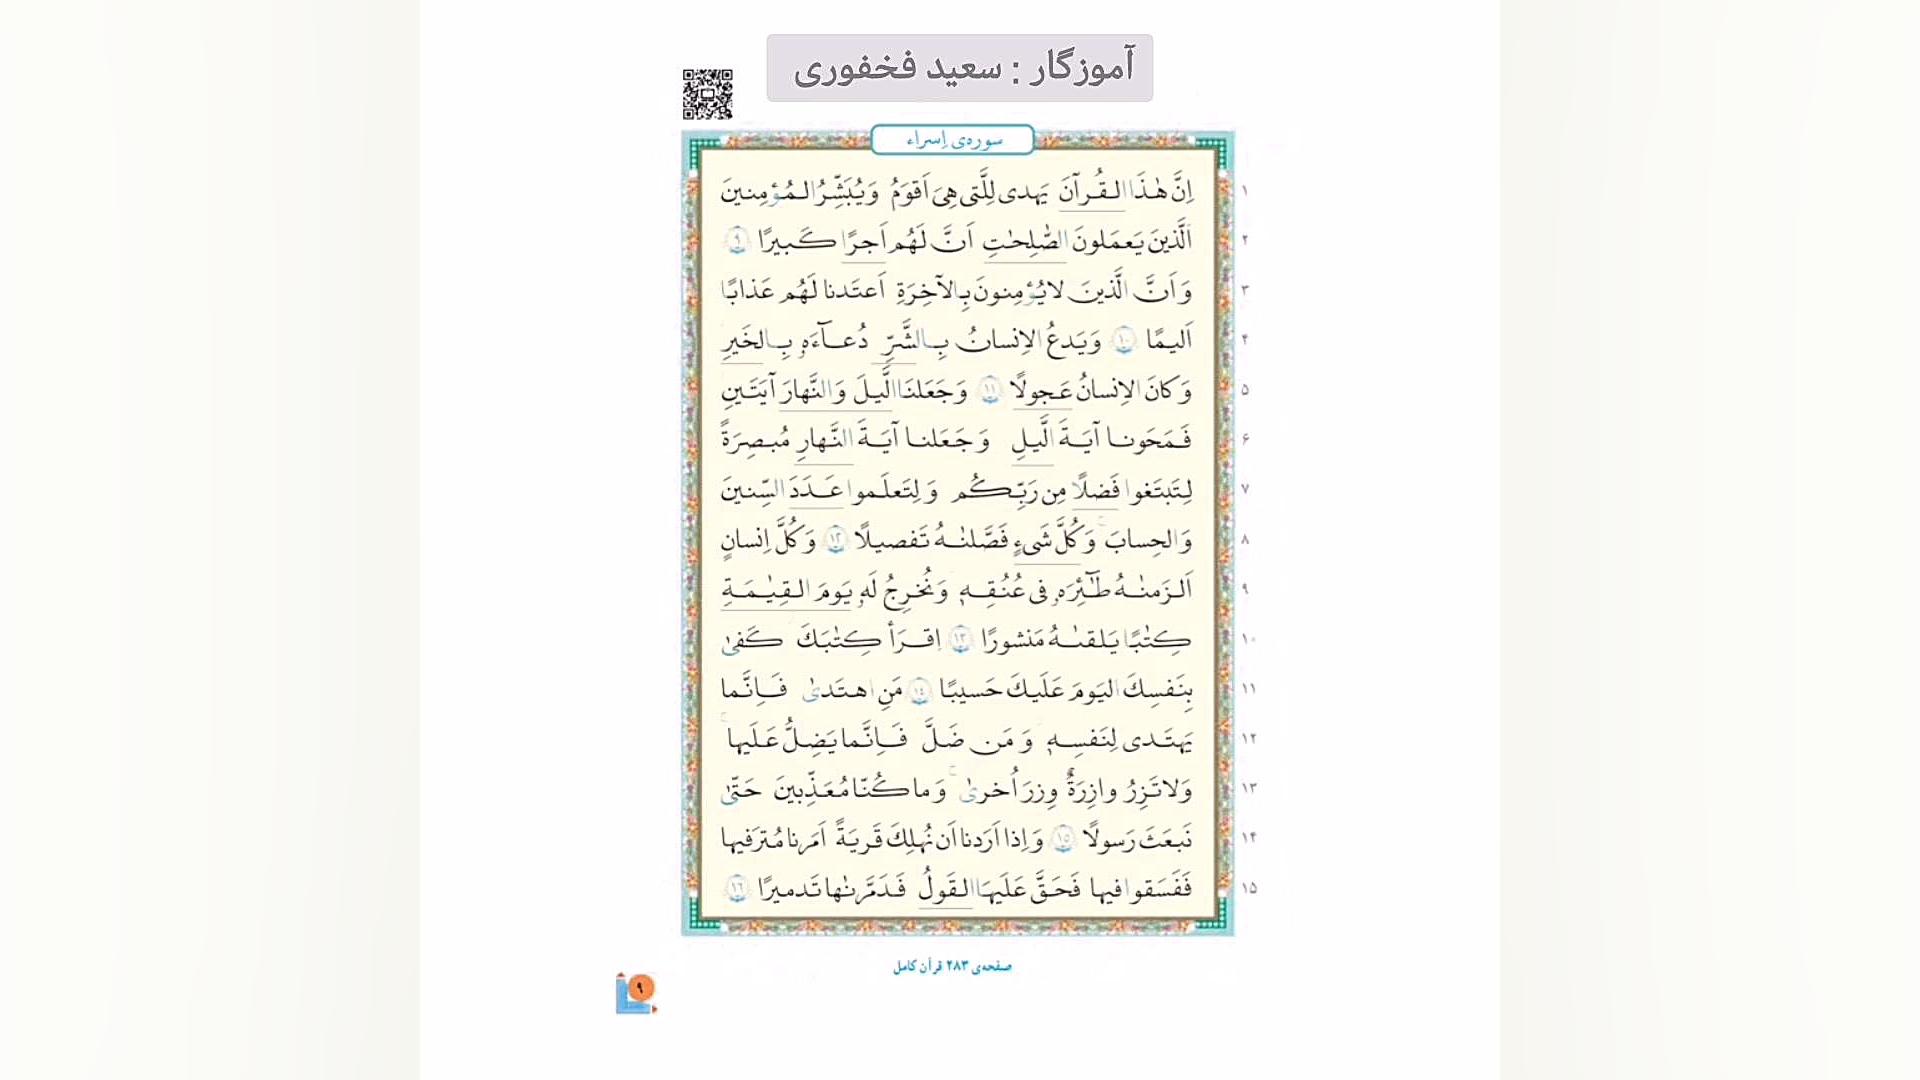 آموزگار : سعید فخفوری
سوره‌ی اِسراء
۱ اِنَّ هٰذَا القُرآنَ یَهدی لِلَّتی هِیَ اَقوَمُ وَ یُبَشِّرُ المُؤمِنینَ
۲ الَّذینَ یَعمَلونَ الصّٰلِحٰتِ اَنَّ لَهُم اَجرًا کَبیرًا ٩
۳ وَ اَنَّ الَّذینَ لا یُؤمِنونَ بِالآخِرَةِ اَعتَدنا لَهُم عَذابًا
۴ اَلیمًا ١٠ وَ یَدعُ الاِنسانُ بِالشَّرِّ دُعآءَهٗ بِالخَیرِ
۵ وَ کانَ الاِنسانُ عَجولًا ١١ وَ جَعَلنَا الَّیلَ وَ النَّهارَ آیَتَینِ
۶ فَمَحَونا آیَةَ الَّیلِ وَ جَعَلنا آیَةَ النَّهارِ مُبصِرَةً
۷ لِتَبتَغوا فَضلًا مِن رَبِّکُم وَ لِتَعلَموا عَدَدَ السِّنینَ
۸ وَ الحِسابَ ۚ وَ کُلَّ شَیءٍ فَصَّلنٰهُ تَفصیلًا ١٢ وَ کُلَّ اِنسانٍ
۹ اَلزَمنٰهُ طٰٓئِرَهٗ فی عُنُقِهٖ وَ نُخرِجُ لَهٗ یَومَ القِیٰمَةِ
۱۰ کِتٰبًا یَلقىٰهُ مَنشورًا ١٣ اِقرَأ کِتٰبَکَ کَفىٰ
۱۱ بِنَفسِکَ الیَومَ عَلَیکَ حَسیبًا ١٤ مَنِ اهتَدىٰ فَاِنَّما
۱۲ یَهتَدی لِنَفسِهٖ وَ مَن ضَلَّ فَاِنَّما یَضِلُّ عَلَیها ۚ
۱۳ وَ لا تَزِرُ وازِرَةٌ وِزرَ اُخرىٰ ۚ وَ ما کُنّا مُعَذِّبینَ حَتّىٰ
۱۴ نَبعَثَ رَسولًا ١٥ وَ اِذا اَرَدنا اَن نُهلِکَ قَریَةً اَمَرنا مُترَفیها
۱۵ فَفَسَقوا فیها فَحَقَّ عَلَیهَا القَولُ فَدَمَّرنٰها تَدمیرًا ١٦
صفحه‌ی ۲۸۳ قرآن کامل
۹